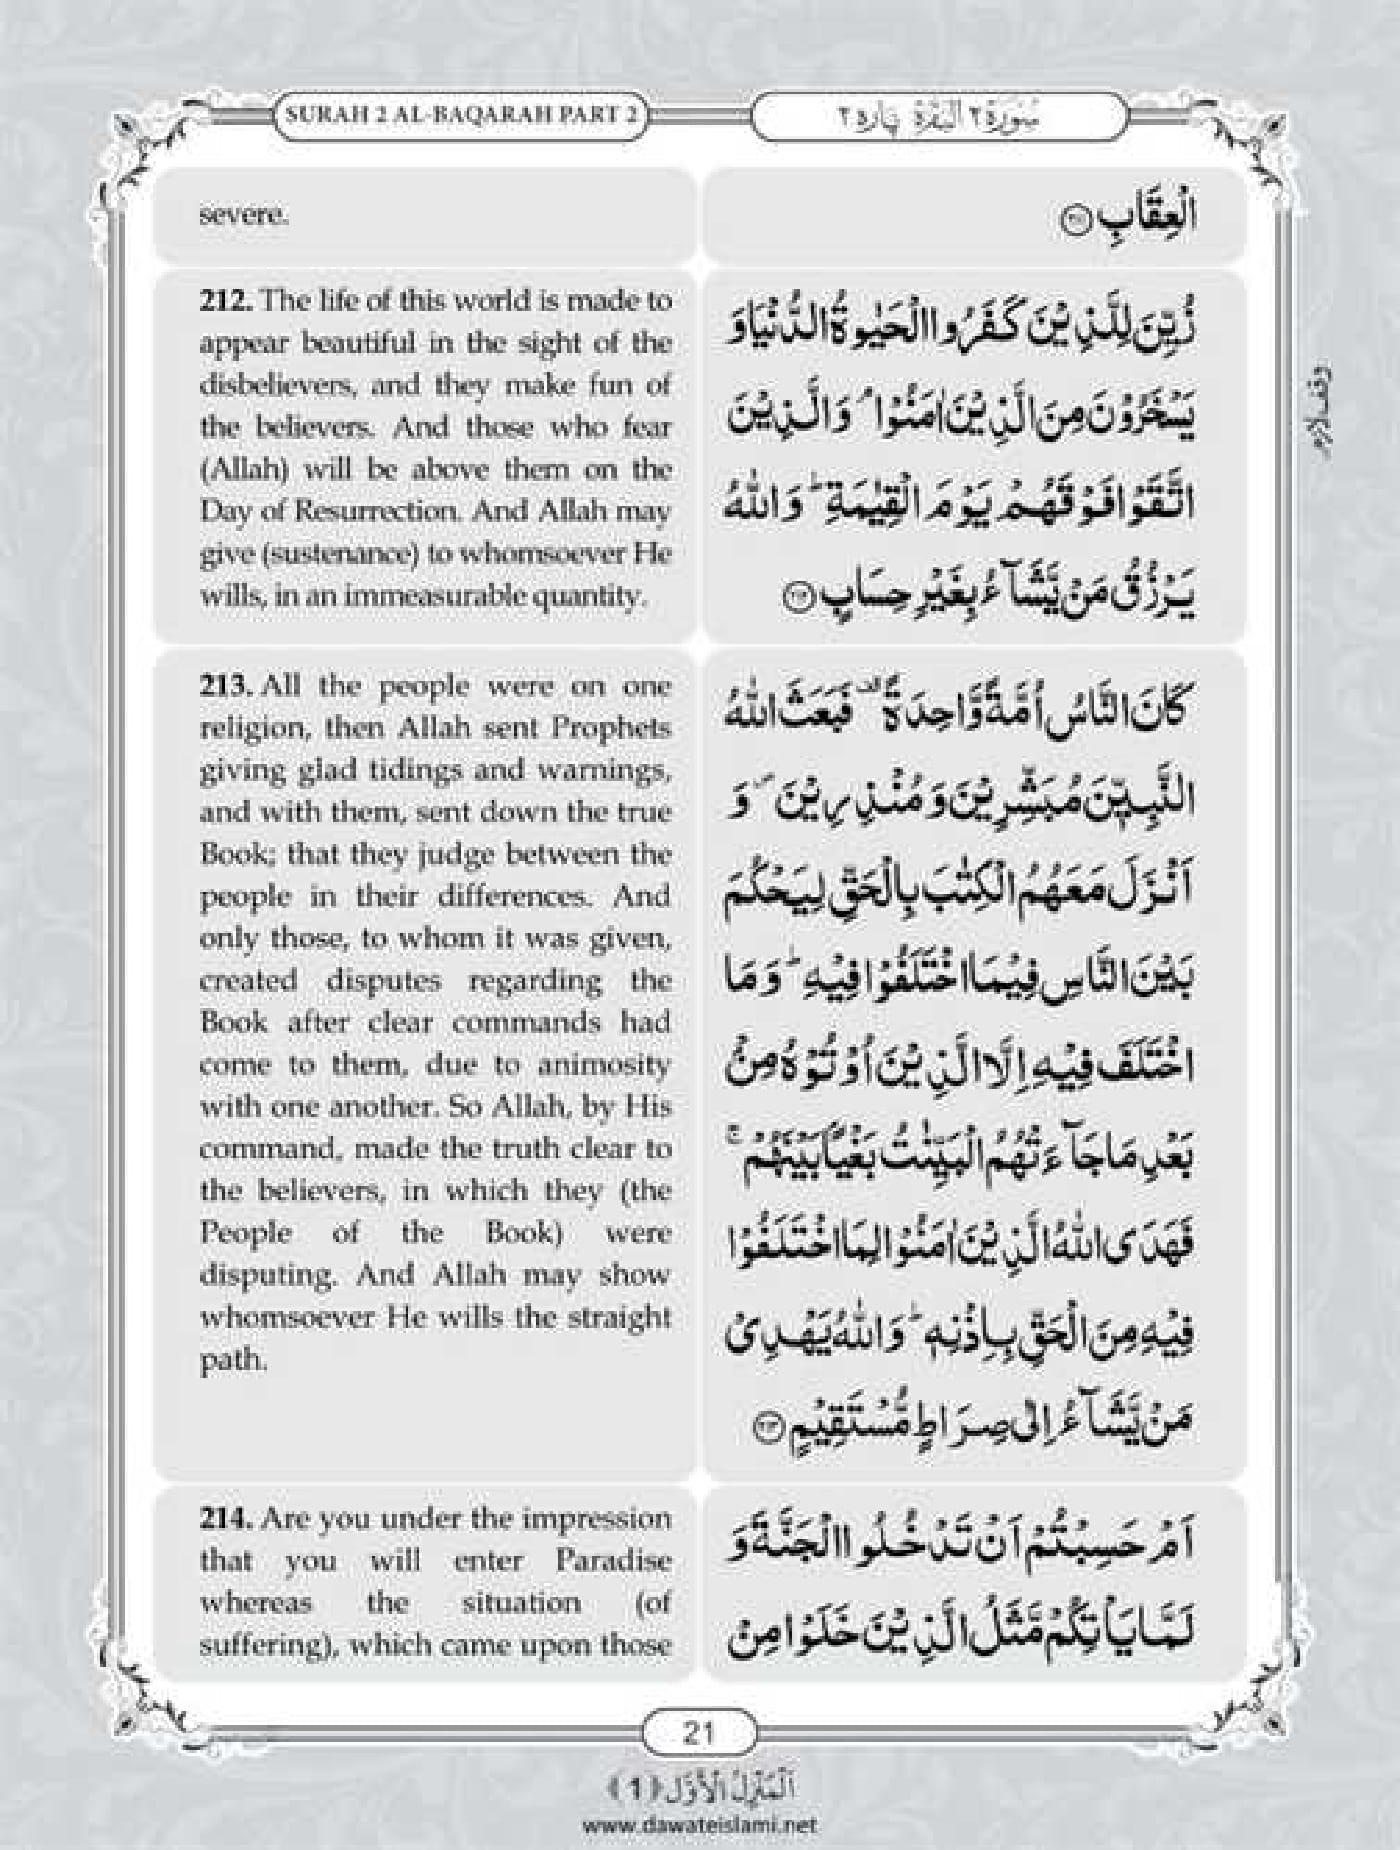 SURAH 2 AL-BAQARAH PART 2
سُوْرَةُ ٢ اَلْبَقَرَةِ پَارہ ٢
severe.
212. The life of this world is made to
appear beautiful in the sight of the
disbelievers, and they make fun of
the believers. And those who fear
(Allah) will be above them on the
Day of Resurrection. And Allah may
give (sustenance) to whomsoever He
wills, in an immeasurable quantity.
213. All the people were on one
religion, then Allah sent Prophets
giving glad tidings and warnings,
and with them, sent down the true
Book; that they judge between the
people in their differences. And
only those, to whom it was given,
created disputes regarding the
Book after clear commands had
come to them, due to animosity
with one another. So Allah, by His
command, made the truth clear to
the believers, in which they (the
People of the Book) were
disputing. And Allah may show
whomsoever He wills the straight
path.
214. Are you under the impression
that you will enter Paradise
whereas the situation (of
suffering), which came upon those
الْعِقَابِ
زُيِّنَ لِلَّذِيْنَ كَفَرُوا الْحَيٰوةُ الدُّنْيَا وَ
يَسْخَرُوْنَ مِنَ الَّذِيْنَ اٰمَنُوْا ۘ وَالَّذِيْنَ
اتَّقَوْا فَوْقَهُمْ يَوْمَ الْقِيٰمَةِ ؕ وَاللّٰهُ
يَرْزُقُ مَنْ يَّشَآءُ بِغَيْرِ حِسَابٍ ﴿۲۱۲﴾
كَانَ النَّاسُ اُمَّةً وَّاحِدَةً ۟ فَبَعَثَ اللّٰهُ
النَّبِيّٖنَ مُبَشِّرِيْنَ وَ مُنْذِرِيْنَ ۪ وَ
اَنْزَلَ مَعَهُمُ الْكِتٰبَ بِالْحَقِّ لِيَحْكُمَ
بَيْنَ النَّاسِ فِيْمَا اخْتَلَفُوْا فِيْهِ ؕ وَ مَا
اخْتَلَفَ فِيْهِ اِلَّا الَّذِيْنَ اُوْتُوْهُ مِنْۢ
بَعْدِ مَا جَآءَتْهُمُ الْبَيِّنٰتُ بَغْيًۢا بَيْنَهُمْ ۚ
فَهَدَى اللّٰهُ الَّذِيْنَ اٰمَنُوْا لِمَا اخْتَلَفُوْا
فِيْهِ مِنَ الْحَقِّ بِاِذْنِهٖ ؕ وَاللّٰهُ يَهْدِيْ
مَنْ يَّشَآءُ اِلٰى صِرَاطٍ مُّسْتَقِيْمٍ ﴿۲۱۳﴾
اَمْ حَسِبْتُمْ اَنْ تَدْخُلُوا الْجَنَّةَ وَ
لَمَّا يَاْتِكُمْ مَّثَلُ الَّذِيْنَ خَلَوْا مِنْ
وقف لازم
21
اَلْمَنْزِلُ الْاَوَّل ﴿1﴾
www.dawateislami.net